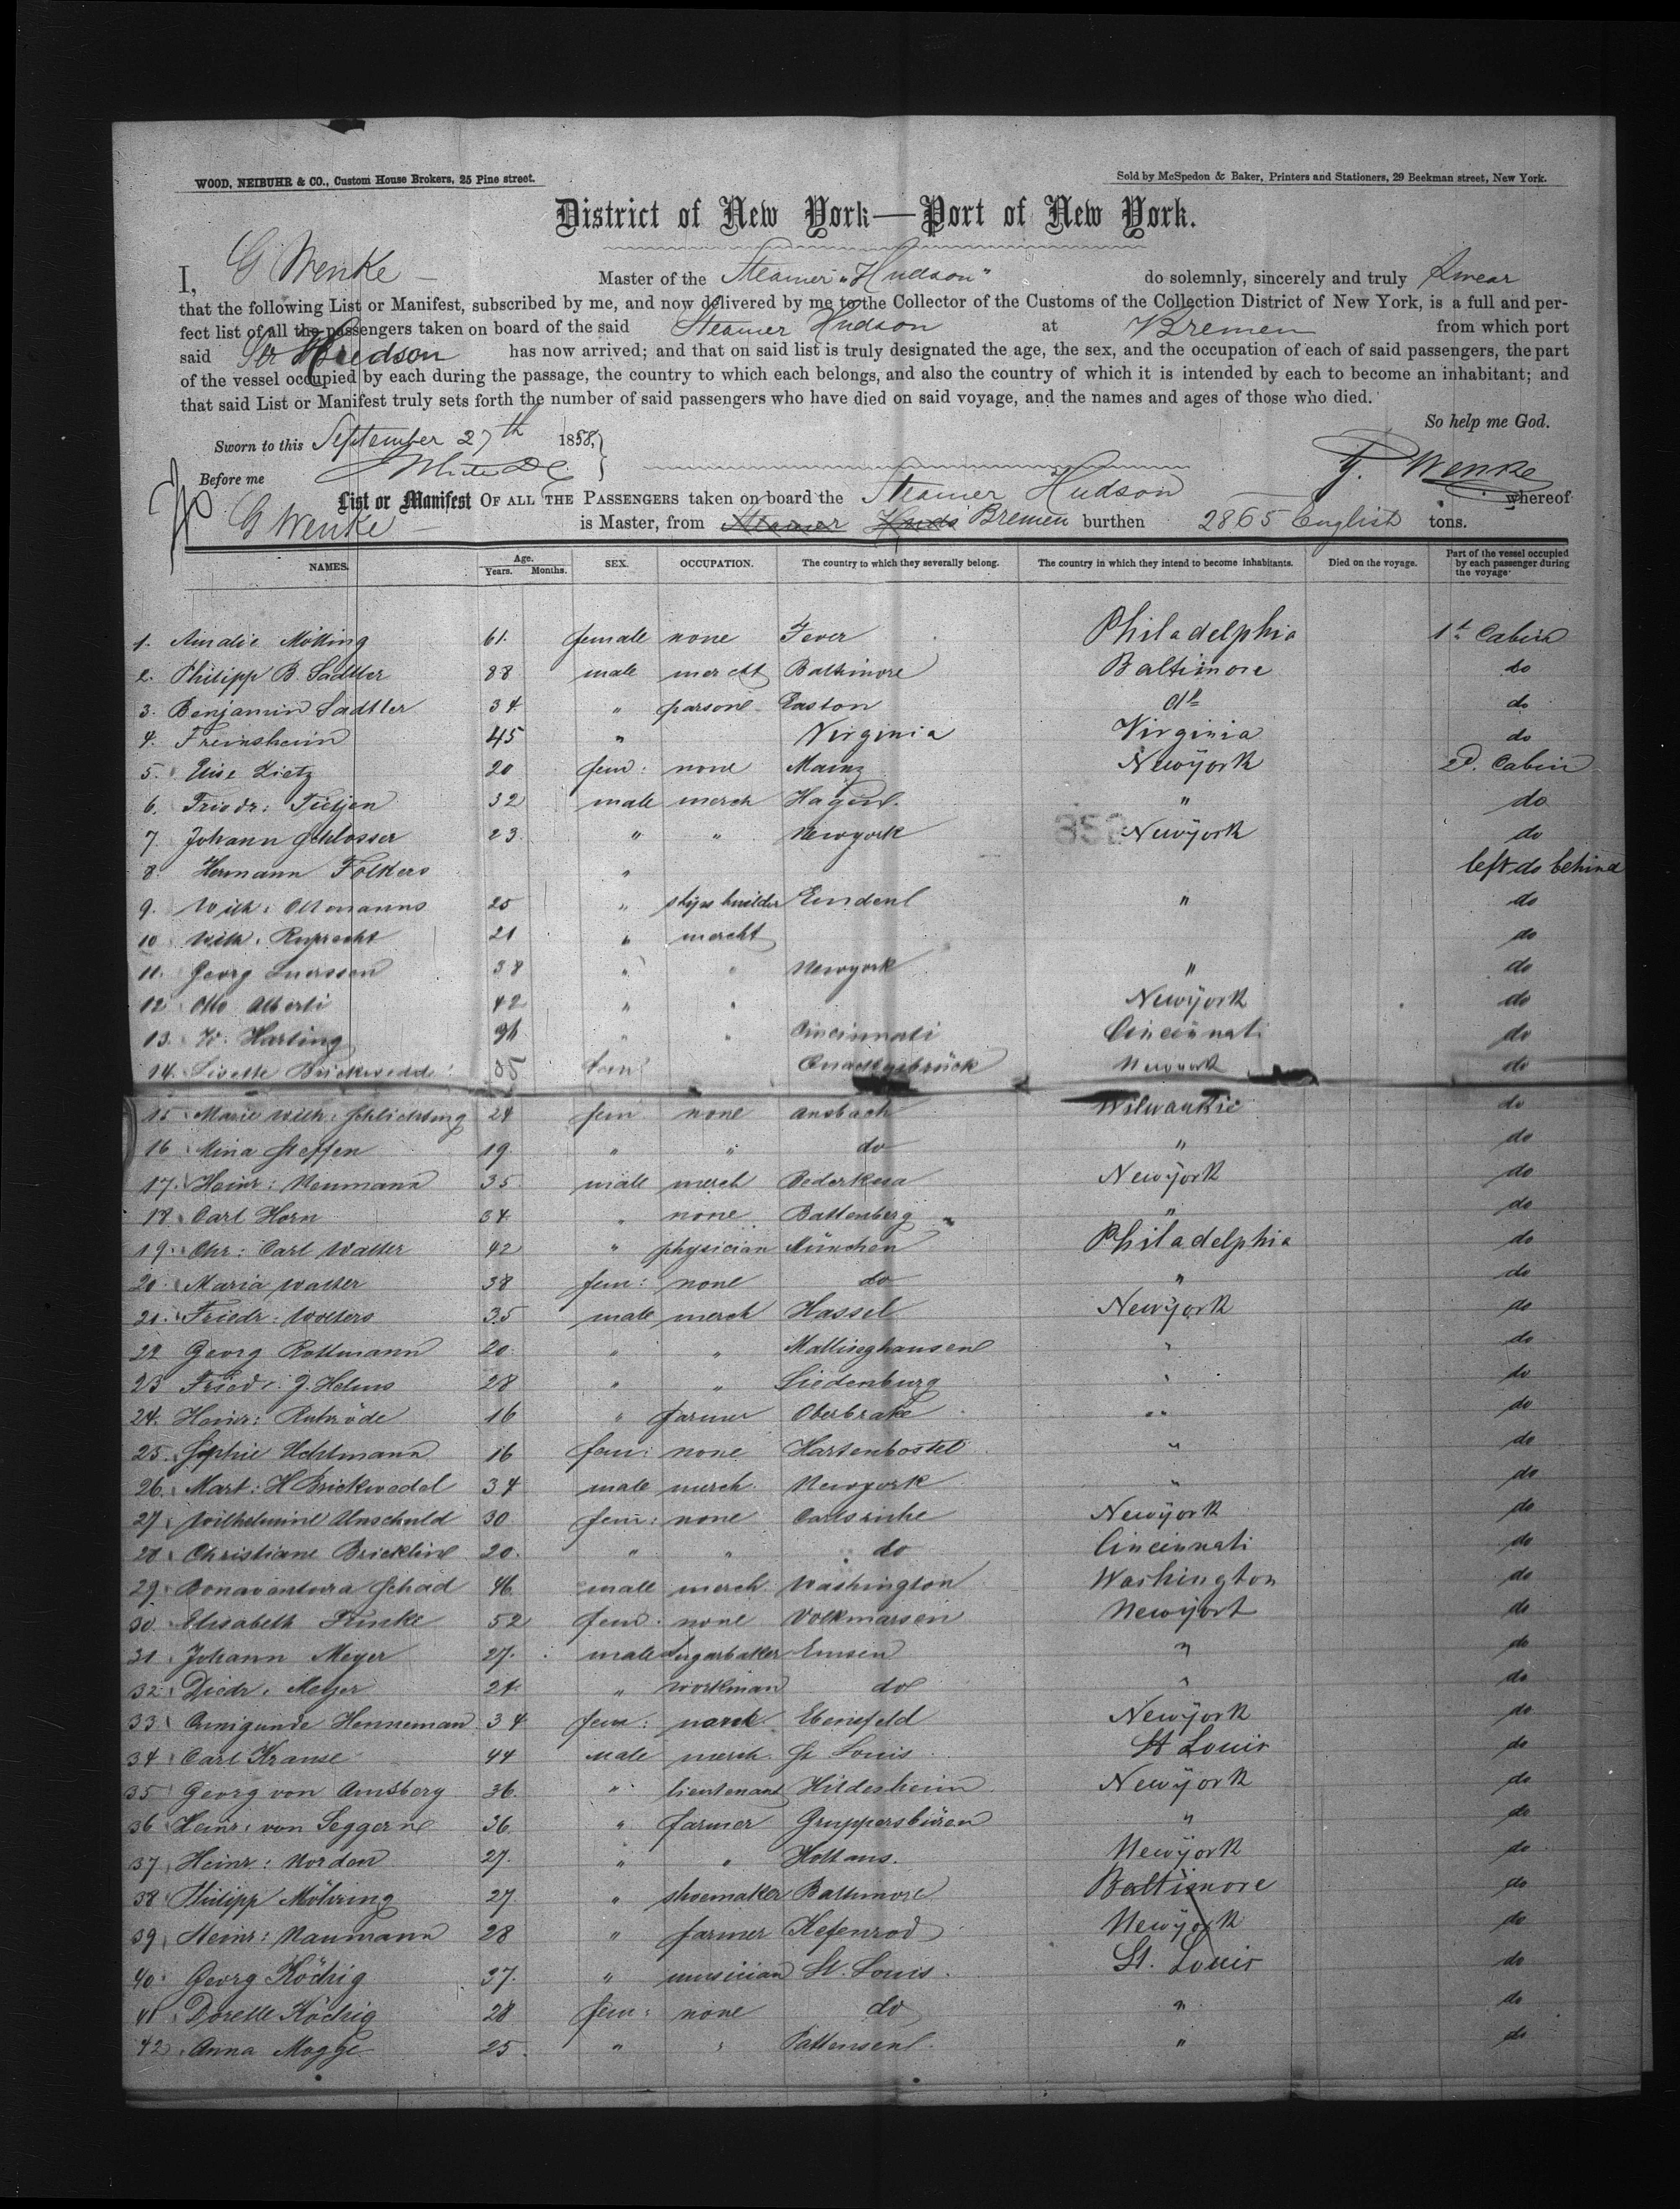 WOOD, NEIBUHR & CO., Custom House Brokers, 25 Pine street. Sold by McSpedon & Baker, Printers and Stationers, 29 Beekman street, New York.
District of New York—Port of New York.
I, G Wenke Master of the Steamer "Hudson" do solemnly, sincerely and truly swear
that the following List or Manifest, subscribed by me, and now delivered by me to the Collector of the Customs of the Collection District of New York, is a full and per-
fect list of all the passengers taken on board of the said Steamer Hudson at Bremen from which port
said Str Hudson has now arrived; and that on said list is truly designated the age, the sex, and the occupation of each of said passengers, the part
of the vessel occupied by each during the passage, the country to which each belongs, and also the country of which it is intended by each to become an inhabitant; and
that said List or Manifest truly sets forth the number of said passengers who have died on said voyage, and the names and ages of those who died.
So help me God.
Sworn to this September 27th 1858,
Before me G. Wenke
List or Manifest OF ALL THE PASSENGERS taken on board the Steamer Hudson whereof
G Wenke is Master, from Steamer Huds Bremen burthen 2865 English tons.
NAMES. Age. Years. Months. SEX. OCCUPATION. The country to which they severally belong. The country in which they intend to become inhabitants. Died on the voyage. Part of the vessel occupied by each passenger during the voyage
1. Amalie Mölling 61. female none Jever Philadelphia 1st Cabin
2. Philipp B. Sadtler 88 male mercht Baltimore Baltimore do
3. Benjamin Sadtler 34 " parson Easton do do
4. Freinsheim 45 " Virginia Virginia do
5. Elise Zietz 20 fem: none Mainz Newyork 2d. Cabin
6. Friedr: Tietjen 32 male merch Hagen " do
7. Johann Schlosser 23. " " Newyork Newyork do
8. Hermann Folkers " left do behind
9. Wilh: Oltmanns 25 " ships builder Emden " do
10 Wilh. Ruprecht 21 " mercht do
11. Georg Luerssen 38 " " Newyork " do
12 Otto Alberti 42 " " Newyork do
13. W. Harting " " Cincinnati Cincinnati do
14. Lisette Brickwedde 35 fem Quackenbrück Newyork do
15 Marie Wilh: Schlichting 24 fem none Ansbach Wilwaukie do
16 Mina Steffen 19 " " do " do
17. Heinr: Neumann 35. male merch Bederkesa Newyork do
18 Carl Horn 34 " none Battenberg " do
19. Chr: Carl Walter 42 " physician München Philadelphia do
20. Maria Walter 38 fem: none do " do
21. Friedr: Wolters 35 male merch Hassel Newyork do
22 Georg Rottmann 20. " " Mallinghausen " do
23 Friedr. J. Helms 28 " " Siedenburg " do
24. Heinr: Ruhröde 16 " farmer Oberbrake " do
25. Sophie Uchtmann 16 fem: none Hartenbostel " do
26. Mart: H Brickwedel 34 male merch. Newyork " do
27 Wilhelmine Unschuld 30 fem: none Carlsruhe Newyork do
28 Christiane Bricklin 20. " " do Cincinnati do
29. Bonaventura Schad 46 male merch Washington Washington do
30. Elisabeth Finke 52 fem: none Volkmarsen Newyork do
31. Johann Meyer 27. male Sugarbaker Emsen " do
32. Diedr. Meyer 21. " workman do " do
33 Cunigunde Henneman 34 fem: Ebensfeld Newyork do
34 Carl Krause 44 male merch. St Louis St Louis do
35 Georg von Amsberg 36. " lieutenant Hildesheim Newyork do
36 Heinr. von Seggern 36. " farmer Gruppenbüren " do
37 Heinr: Norden 27. " " Newyork do
38 Philipp Möhring 27. " shoemaker Baltimore Baltimore do
39 Heinr: Naumann 28 " farmer Kefenrod Newyork do
40. Georg Köchig 37. " musician St. Louis. St. Louis do
41. Dorette Köchig 28 fem: none do " do
42. Anna Mogge 25. " " Pattensen " do